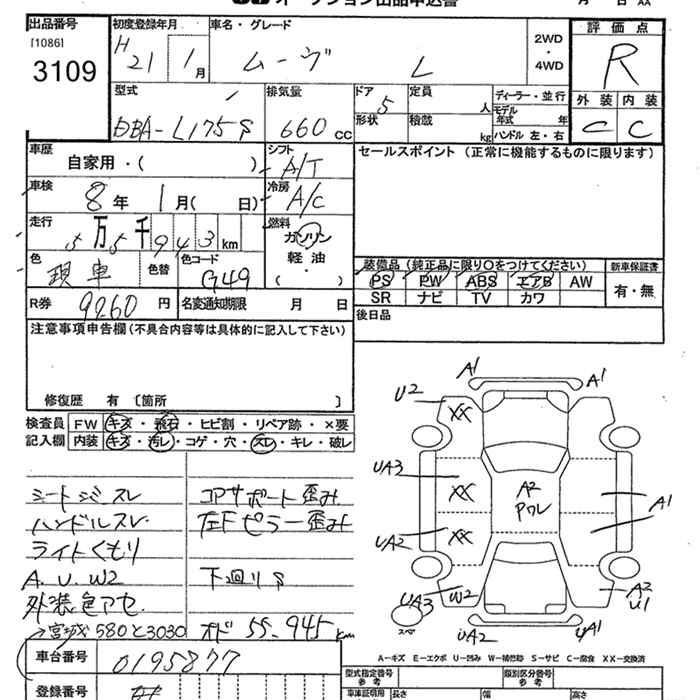 オークション出品申込書
出品番号 初度登録年月 車名・グレード 評価点
[1086] H 21 1月 ムーヴ L 2WD・4WD R
3109
外装 内装
C C
型式 排気量 ドア 定員 ディーラー・並行
DBA-L175S 660cc 5 人 モデル年式 年
形状 積載 kg ハンドル 左・右
車歴 シフト セールスポイント(正常に機能するものに限ります)
自家用・( ) A/T
車検 冷房
8年 1月( 日) A/C
走行 燃料
5万5千943km ガソリン
軽油
( )
色 色替 色コード 装備品(純正品に限り○をつけてください) 新車保証書
現車 G49 PS PW ABS エアB AW 有・無
SR ナビ TV カワ
R券 9260円 名変通知期限 月 日 後日品
注意事項申告欄(不具合内容等は具体的に記入して下さい)
修復歴 有〔箇所 〕
検査員 FW キズ・飛石・ヒビ割・リペア跡・×要
記入欄 内装 キズ・汚レ・コゲ・穴・スレ・キレ・破レ
シートシミスレ
ハンドルスレ
ライトくもり
A.U.W2
外装色アセ
→宮城 580と3030
コアサポート歪み
左Fピラー歪み
下廻りS
オド 55.945km
A1 A1
U2 XX
UA3 XX A2 Pワレ A1
UA2 XX
UA3 W2 A2 U1
スペア UA2 UA1
A-キズ E-エクボ U-凹み W-補修跡 S-サビ C-腐食 XX-交換済
車台番号 0195877
型式指定番号 参考 類別区分番号 参考
登録番号
車庫証明用 長さ 幅 高さ